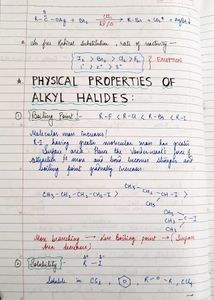 R-C-OAg + Br₂ CCl₄ → R-Br + CO₂ + AgBr↓
* In free Radical Substitution, rate of reactivity -
I₂ > Br₂ > Cl₂ > F₂ EXCEPTION
1° > 2° > 3°
* PHYSICAL PROPERTIES OF
ALKYL HALIDES:
① Boiling Point: R-F < R-Cl < R-Br < R-I
Molecular mass increases!
R-I, having greater molecular mass has greater
Surface area. Hence the Vanderwaal's force of
attraction is more and bond becomes stronger and
boiling point gradually increases.
CH₃-CH₂-CH₂-CH₂-I > CH₃-CH₂-CH-I >
CH₃
CH₃
CH₃-C-I
CH₃
More branching → Less boiling point → (Surface
Area decreases)
② Solubility: R-I
Soluble in CS₂, R-O-R, CCl₄